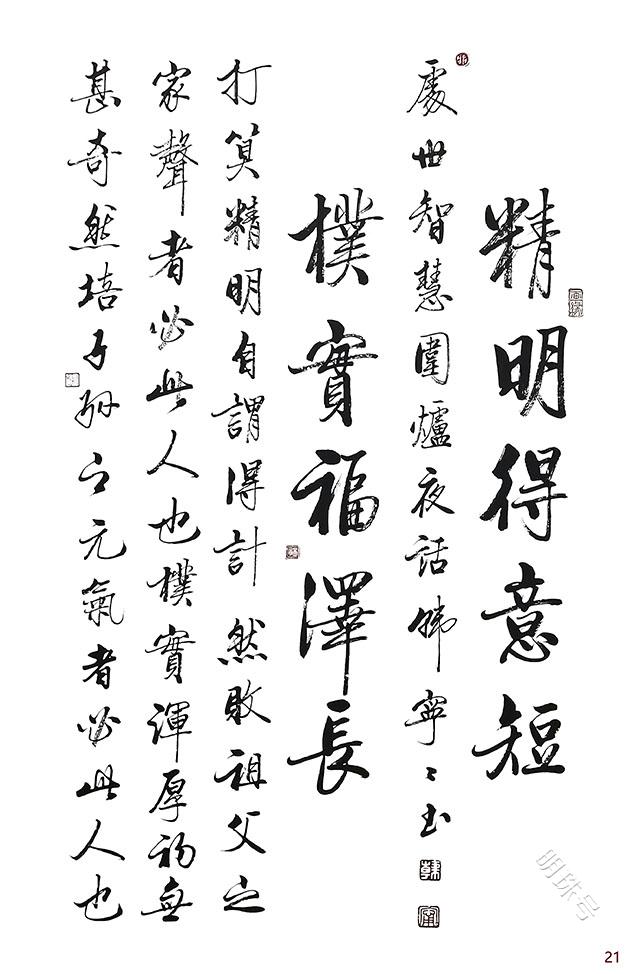 精明得意短
處世智慧圍爐夜話韓寧〻书
樸實福澤長
打算精明自謂得計然敗祖父之
家聲者必此人也樸實渾厚初無
甚奇然培子孫之元氣者必此人也
明珠号
21